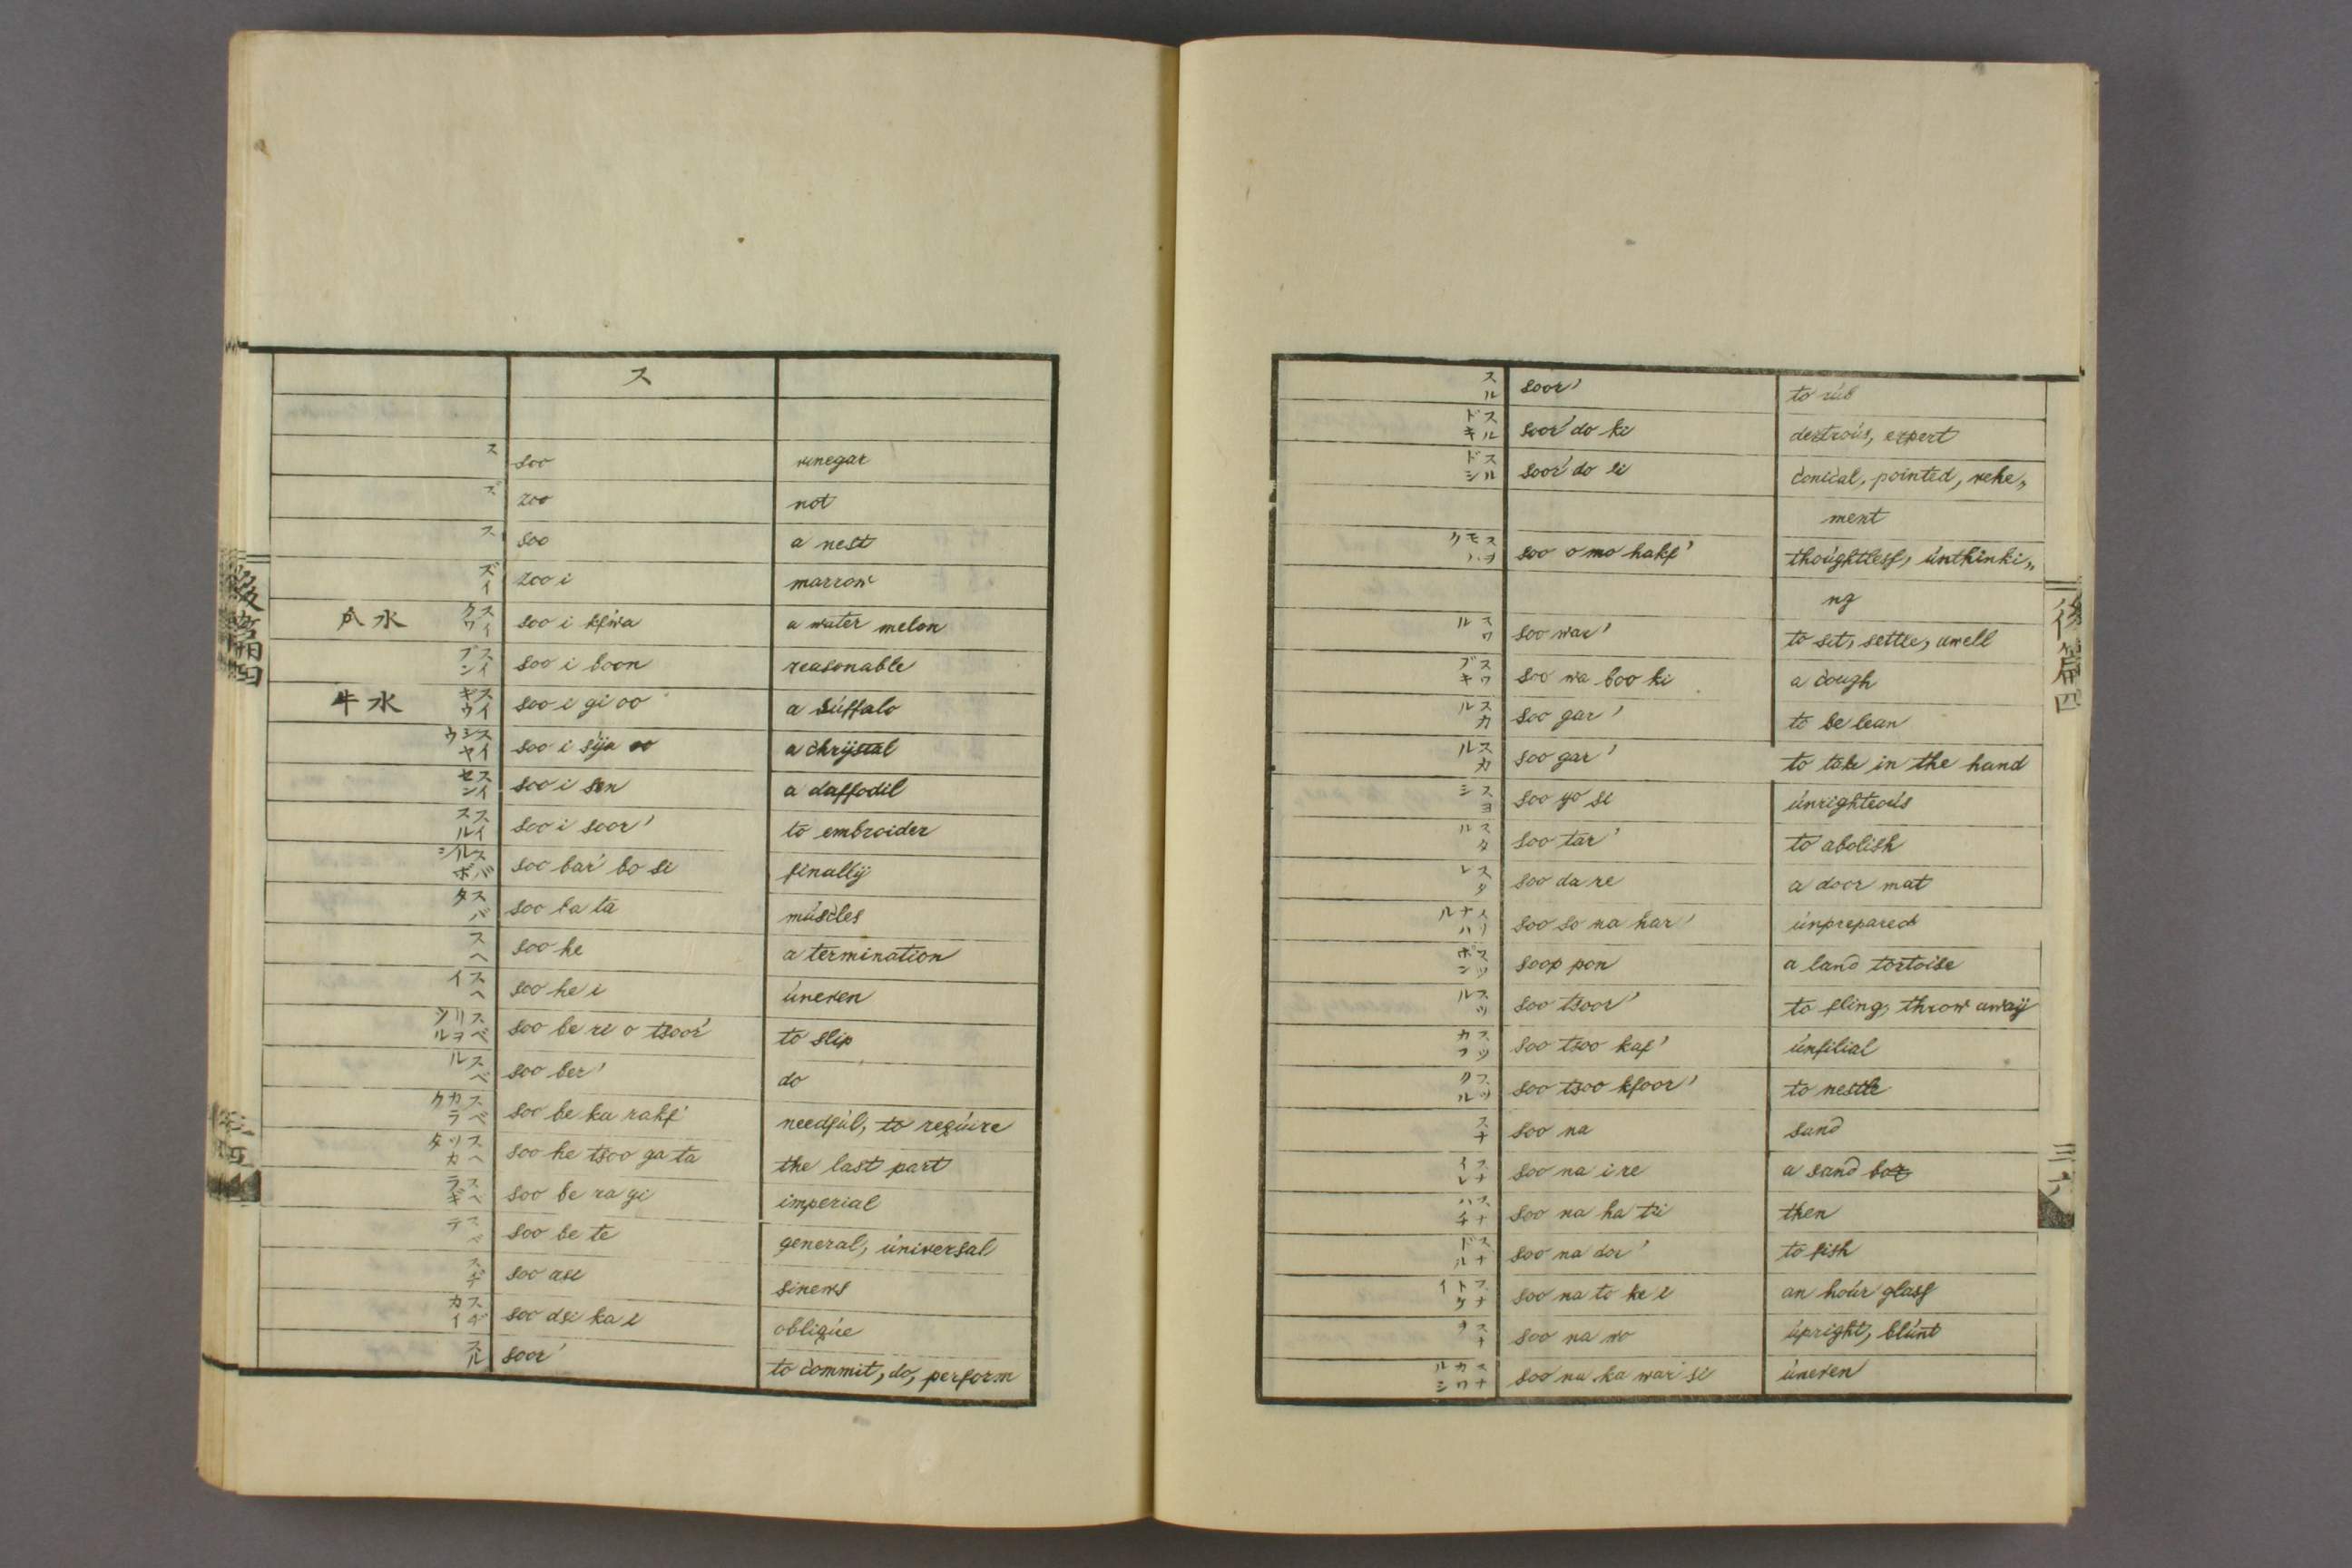 ス
ス soo vinegar
ズ zoo not
ス soo a nest
ズイ zoo i marrow
水瓜 スイクワ soo i kfwa a water melon
スイブン soo i boon reasonable
水牛 スイギウ soo i gi oo a buffalo
スイシヤウ soo i sija oo a chrijstal
スイセン soo i sen a daffodil
スイスル soo i soor' to embroider
スバルボシ soo bar' bo si finallij
スバタ soo ba ta muscles
スヘ soo he a termination
スヘイ soo he i uneven
スベリヲツル soo be ri o tsoor' to slip
スベル soo ber' do
スベカラク soo be ka rakf' needful, to require
スヘツカタ soo he tsoo ga ta the last part
スベラギ soo be ra gi imperial
スベテ soo be te general, universal
スヂ soo dsi sinews
スヂカイ soo dsi ka i oblique
スル soor' to commit, do, perform
後篇四
スル soor' to rub
スルドキ soor' do ki dextrous, expert
スルドシ soor' do si conical, pointed, vehe„
ment
スヲモハク soo o mo hakf' thoughtless, unthinki„
ng
スワル soo war' to sit, settle, dwell
スワブキ soo wa boo ki a cough
スカル soo gar' to be lean
スカル soo gar' to take in the hand
スヨシ soo yo si unrighteous
スタル soo tar' to abolish
スダレ soo da re a door mat
スソナハル soo so na har' unprepared
スツポン soop pon a land tortoise
スツル soo tsoor' to fling, throw awaij
スツカフ soo tsoo kaf' unfilial
スツクル soo tsoo kfoor' to nestle
スナ soo na sand
スナイレ soo na i re a sand box
スナハチ soo na ha tsi then
スナドル soo na dor' to fish
スナトケイ soo na to ke i an hour glass
スナヲ soo na wo upright, blunt
スナカワルシ soo na ka war' si uneven
後篇四
三六